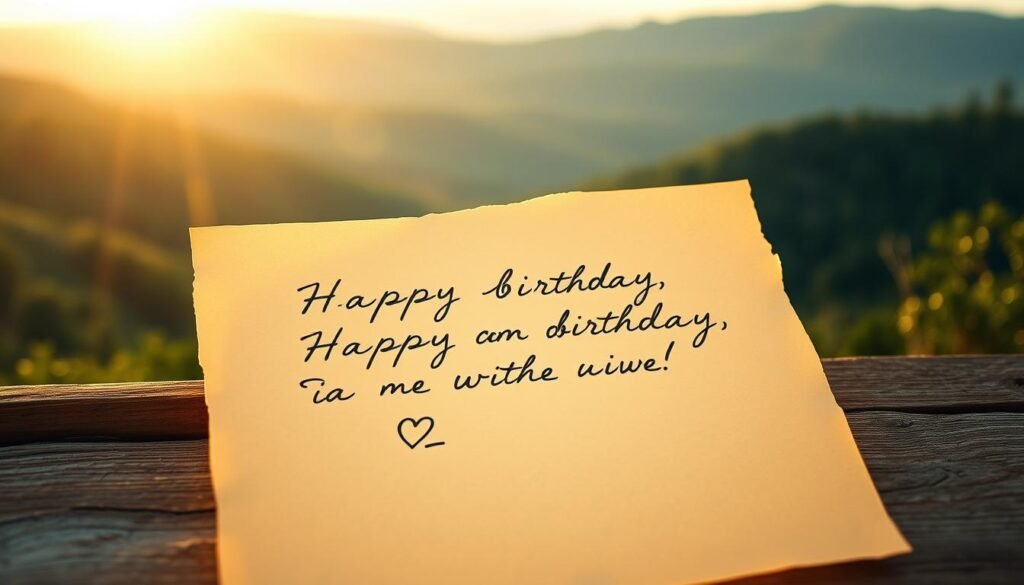 Happy birthday,
Happy am birthday,
me withe uiwe!